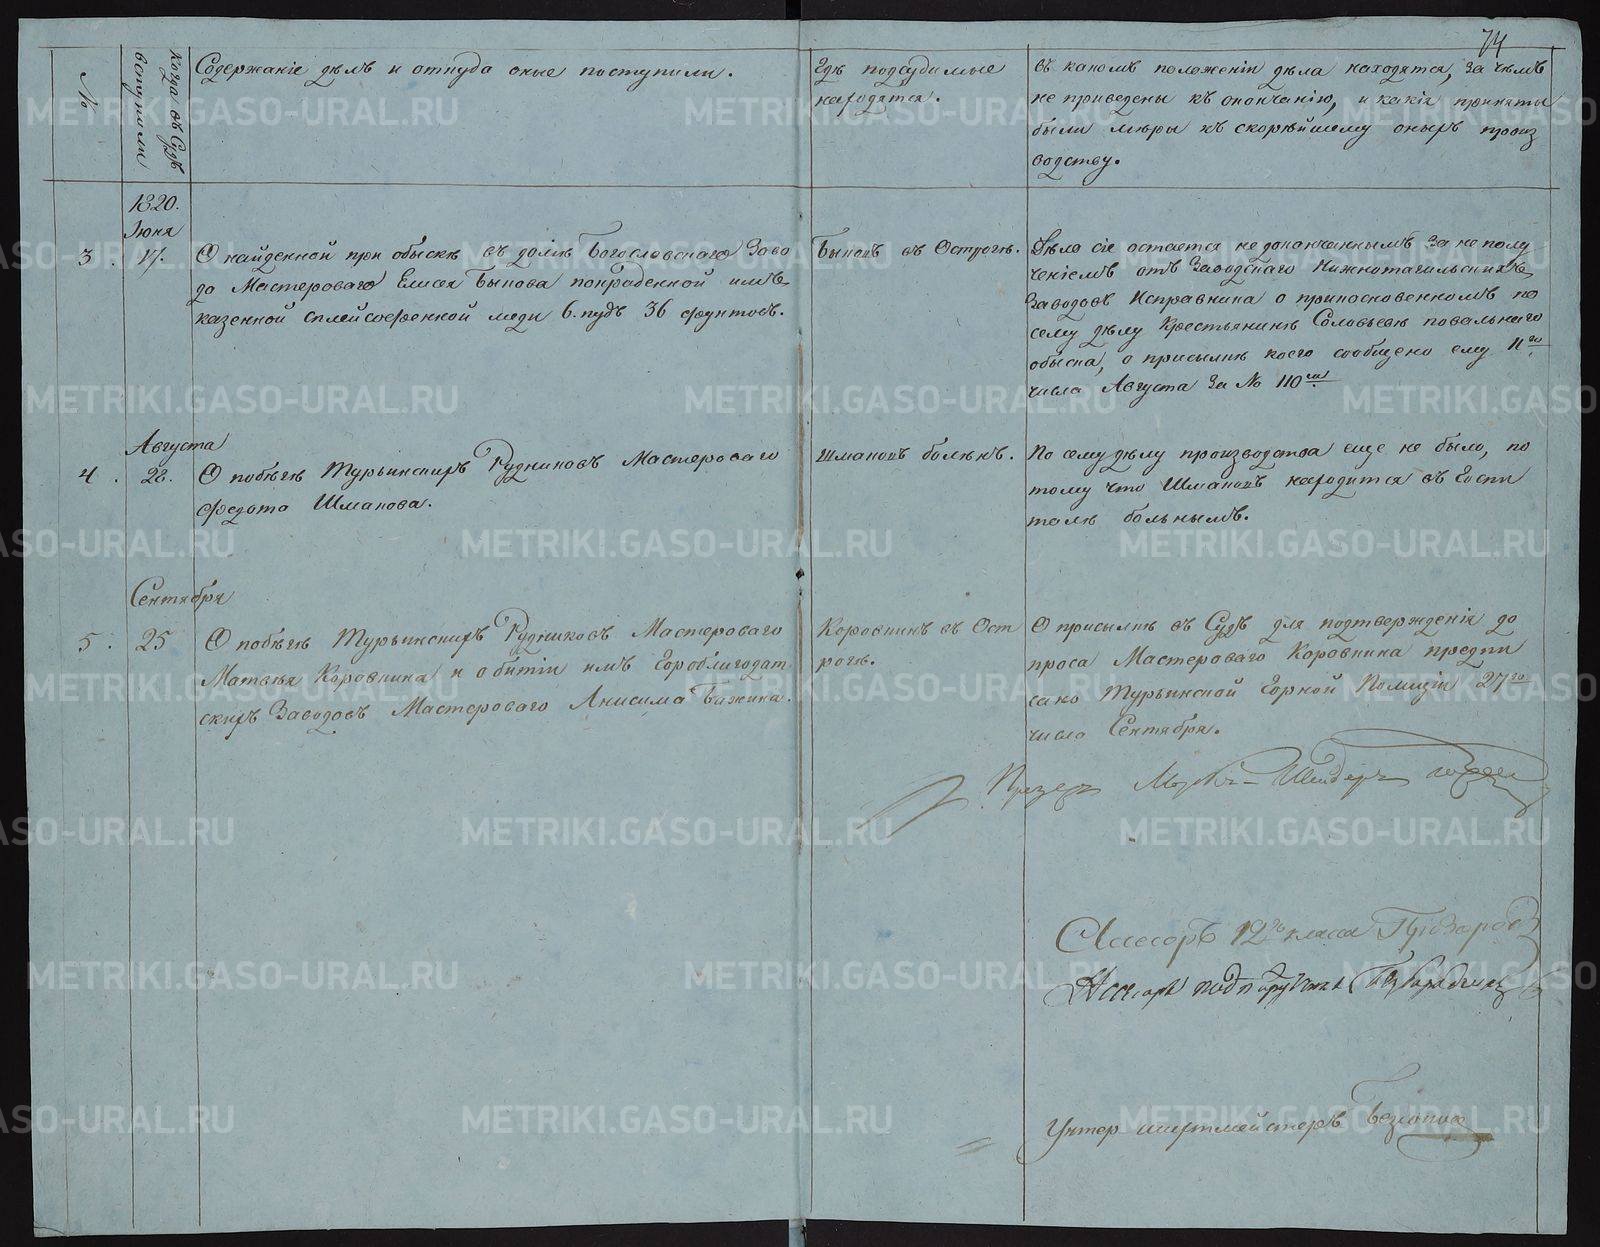 74
№
когда въ Судъ
вступили
Содержаніе дѣлъ и откуда оные поступили.
Гдѣ подсудимые
находятся.
Въ какомъ положеніи дѣла находятся, за чѣмъ
не приведены къ окончанію, и какія приняты
были мѣры къ скорѣйшему оныхъ произ
водству.
1820.
Іюня
3. 17.
О найденной при обыскѣ въ домѣ Богословскаго Заво
да Мастероваго Елисея Быкова покраденной имъ
казенной сплейсофенной меди 6. пудъ 36 фунтовъ.
Быковъ въ Острогѣ.
Дѣло сіе остается недоконченнымъ за неполу
ченіемъ отъ Заводскаго Нижнотагильскихъ
Заводовъ Исправника о прикосновенномъ по
сему дѣлу Крестьянинѣ Соловьевѣ повальнаго
обыска, о присылкѣ коего сообщено ему 11го
числа Августа за № 110м
Августа
4. 28.
О побѣгѣ Турьинскихъ Рудниковъ Мастероваго
Федота Шмакова.
Шмаковъ боленъ.
По сему дѣлу производства еще не было, по
тому что Шмаковъ находится въ Госпи
талѣ больнымъ.
Сентября
5. 25
О побѣгѣ Турьинскихъ Рудниковъ Мастероваго
Матвѣя Коровкина и о битіи имъ Гороблагодат
скихъ Заводовъ Мастероваго Анисима Бажина.
Коровкинъ въ Ост
рогѣ.
О присылкѣ въ Судъ для подтвержденія до
проса Мастероваго Коровкина предпи
сано Турьинской Горной Полиціи 27го
число Сентября.
Ассесоръ 12го класса
Ассесоръ подпорутчикъ
Унтер шихтмейстеръ
METRIKI.GASO-URAL.RU